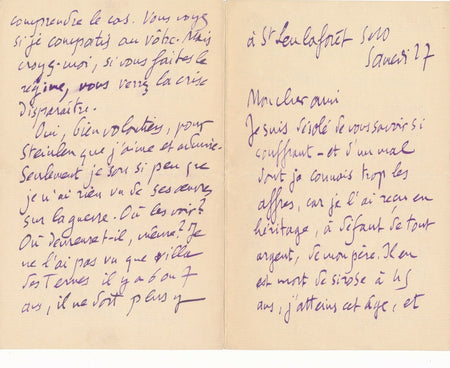 à St Leu la forêt S&O
Samedi 27
Mon cher ami
Je suis désolé de vous savoir si
souffrant - et d'un mal
dont je connais trop les
affres, car je l'ai reçu en
héritage, à défaut de tout
argent, de mon père. Il en
est mort de sirose à 45
ans, j'atteins cet âge, et
comprendre le cas. Vous voyez
si je compatis au vôtre. Mais
croyez-moi, si vous faites le
régime, vous verrez la crise
disparaître.
Oui, bien volontiers, pour
Steinlen que j'aime et admire.
Seulement je sors si peu que
je n'ai rien vu de ses œuvres
sur la guerre. Où les voir?
Où demeure-t-il, même? Je
ne l'ai pas vu que villa
des Ternes il y a 6 ou 7
ans, il ne doit plus y